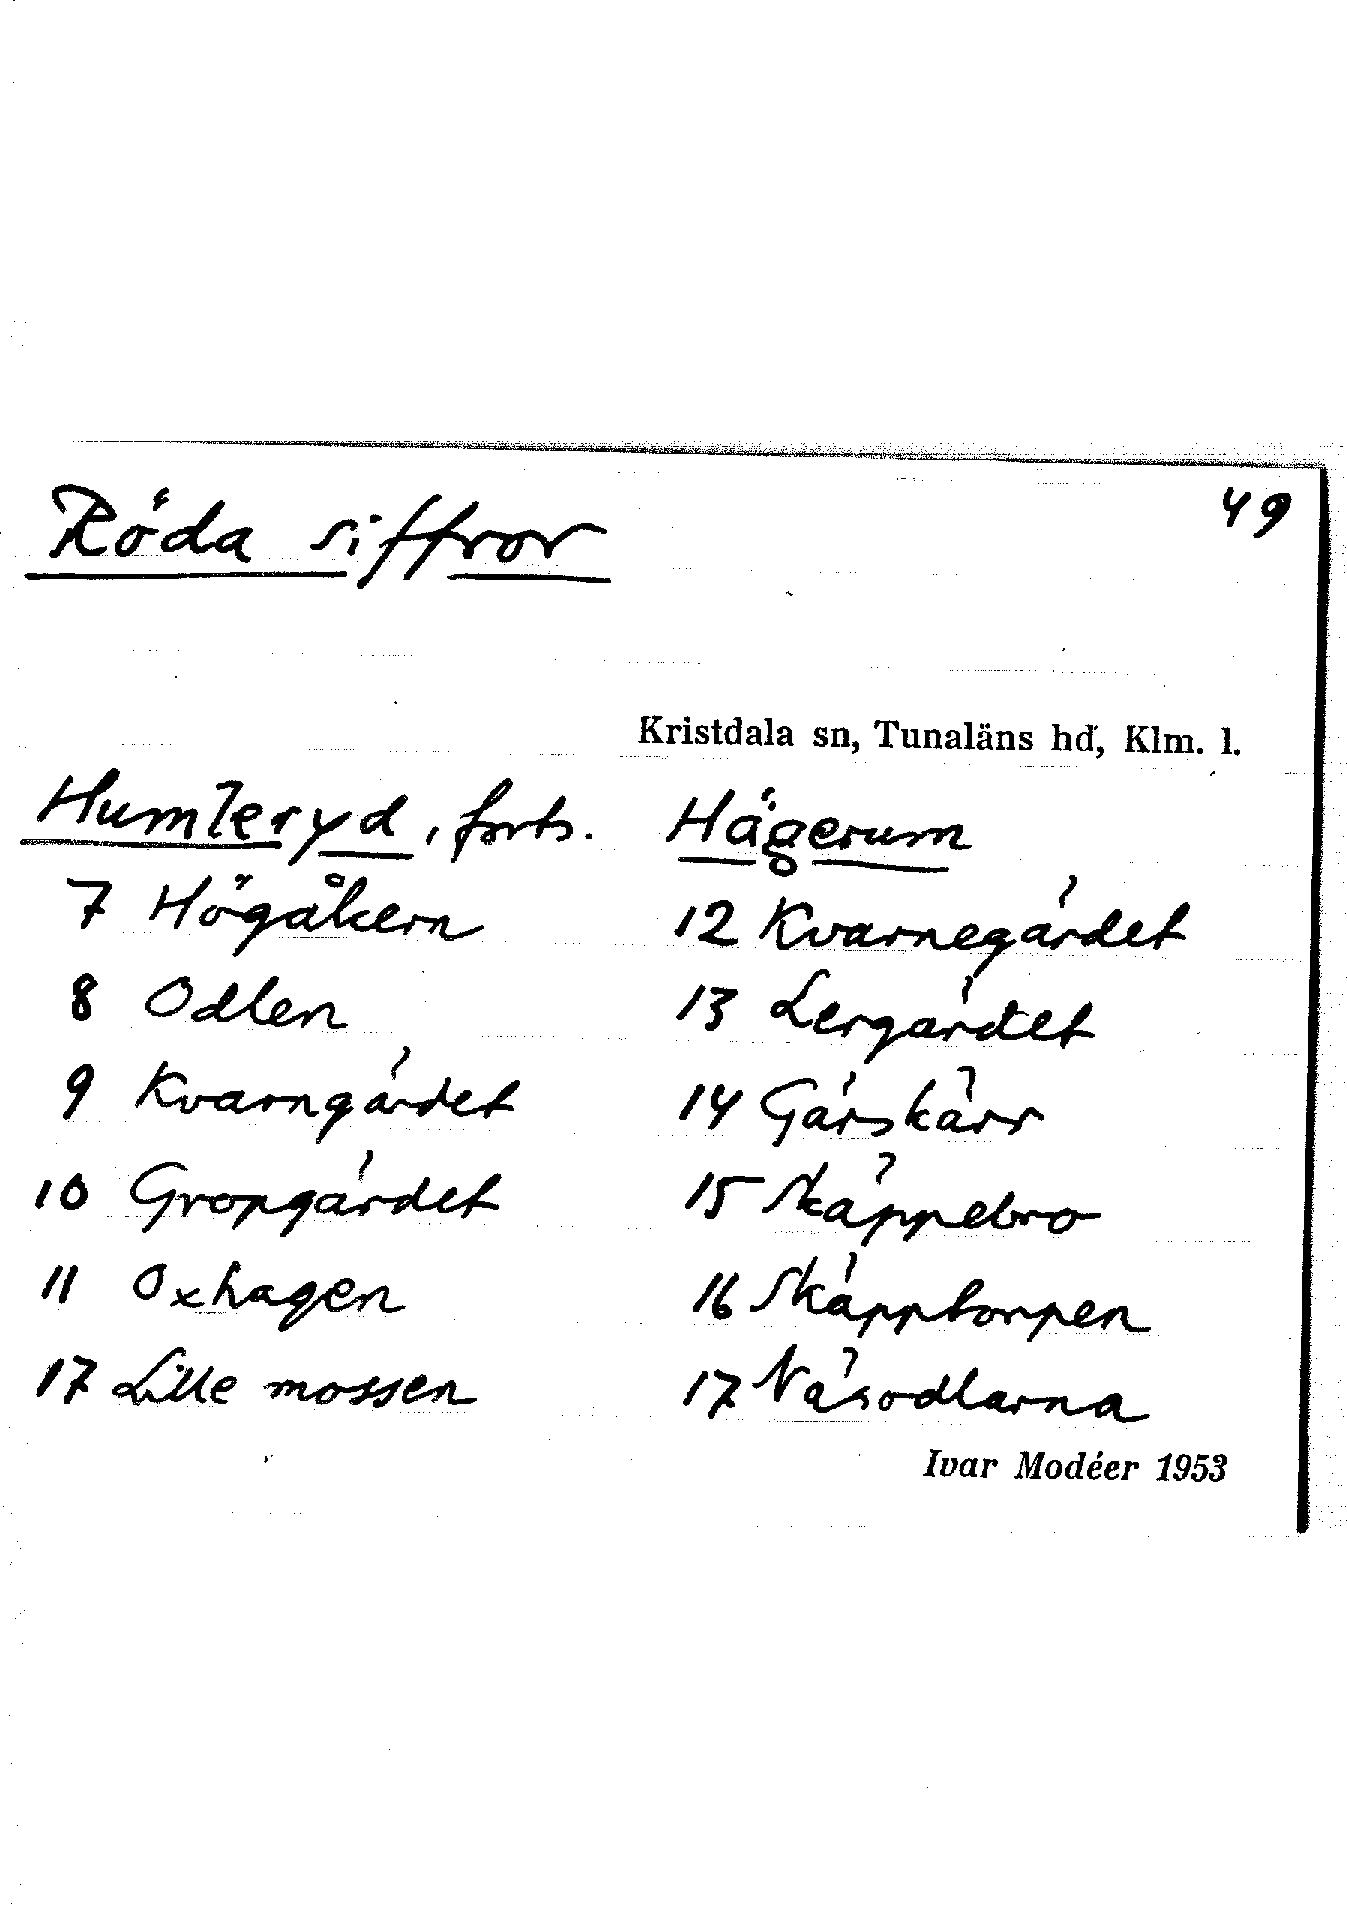 Röda siffror
49
Kristdala sn, Tunaläns hd, Klm. l.
Humleryd, forts.
7 Högåkern
8 Odlen
9 Kvarngärdet
10 Gropgärdet
11 Oxhagen
17 Lille mossen
Hägerum
12 Kvarnegärdet
13 Lergärdet
14 Gärskärr
15 Skäppebro
16 Skäpptorpen
17 Näsodlarna
Ivar Modéer 1953